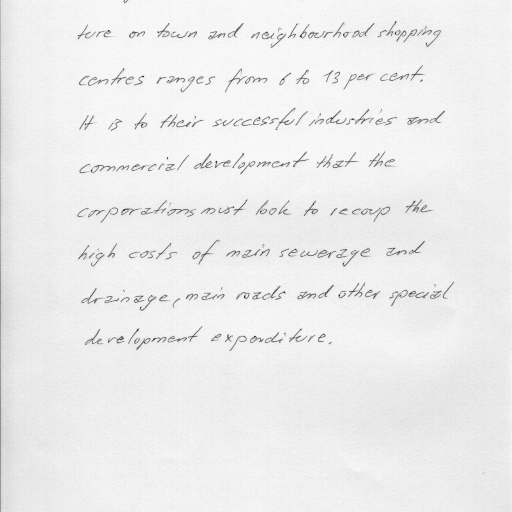 ture on town and neighbourhood shopping
centres ranges from 6 to 13 per cent.
It is to their successful industries and
commercial development that the
corporations must look to recoup the
high costs of main sewerage and
drainage, main roads and other special
development expenditure.